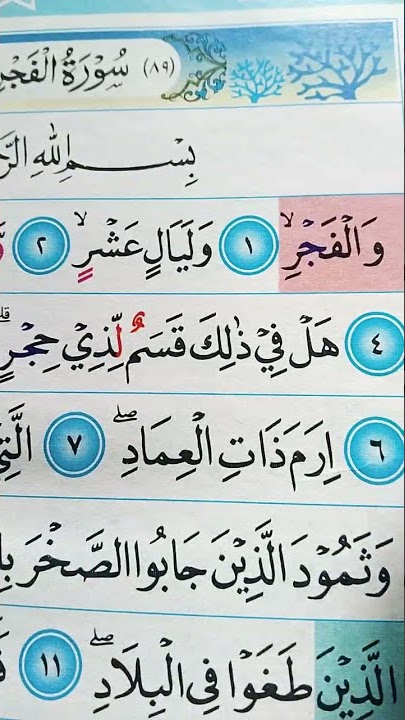 (٨٩) سُوْرَةُ الْفَجْرِ
بِسْمِ اللهِ
وَالْفَجْرِۙ ١ وَلَيَالٍ عَشْرٍۙ ٢
٤ هَلْ فِيْ ذٰلِكَ قَسَمٌ لِّذِيْ حِجْرٍۗ
٦ اِرَمَ ذَاتِ الْعِمَادِۖ ٧ الَّتِيْ
وَثَمُوْدَ الَّذِيْنَ جَابُوا الصَّخْرَ
الَّذِيْنَ طَغَوْا فِى الْبِلَادِۖ ١١